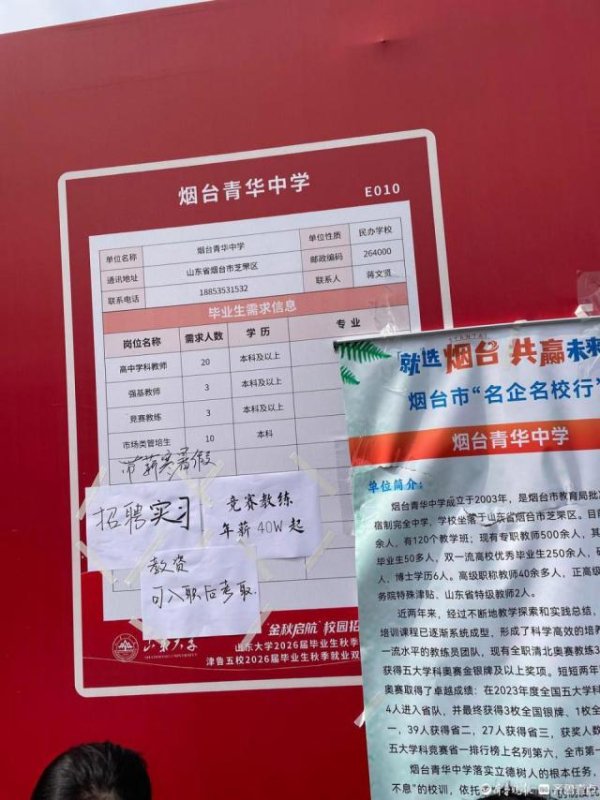 烟台青华中学
E010
单位名称 烟台青华中学 单位性质 民办学校
通讯地址 山东省烟台市芝罘区 邮政编码 264000
联系电话 18853531532 联系人 蒋文贤
毕业生需求信息
岗位名称 需求人数 学历 专业
高中学科教师 20 本科及以上
强基教师 3 本科及以上
竞赛教练 3 本科及以上
市场类管培生 10 本科
带薪寒暑假
招聘实习
竞赛教练
年薪40W起
教资
可入职后考取
山东大学
"金秋启航"校园招
山东大学2026届毕业生秋季
津鲁五校2026届毕业生秋季就业双
就选烟台 共赢未来
烟台市"名企名校行"
烟台青华中学
单位简介：
烟台青华中学成立于2003年，是烟台市教育局批
宿制完全中学，学校坐落于山东省烟台市芝罘区。目前
余人，有120个教学班；现有专职教师500余人，其
毕业生50多人，双一流高校优秀毕业生250余人，硕
人，博士学历6人。高级职称教师40余多人，正高级
务院特殊津贴、山东省特级教师2人。
近两年来，经过不断地教学探索和实践总结，
培训课程已逐渐系统成型，形成了科学高效的培养
一流水平的教练员团队，现有全职清北奥赛教练3
获得五大学科奥赛金银牌及以上奖项。短短两年
奥赛取得了卓越成绩：在2023年度全国五大学科
4人进入省队，并最终获得3枚全国银牌、1枚全
一，39人获得省二，27人获得省三，获奖人数
五大学科竞赛省一排行榜上名列第六，全市第一
烟台青华中学落实立德树人的根本任务，
不息"的校训，依托